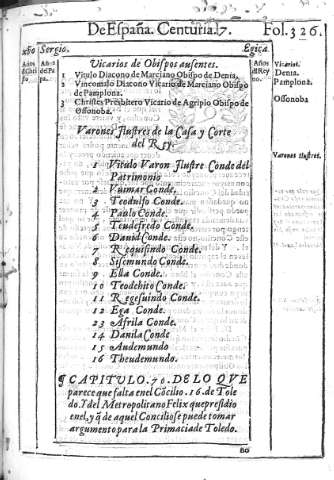 De España. Centuria. 7. Fol. 326.
Sergio. Egica.
Vicarios de Obispos ausentes.
1 Vitulo Diacono de Marciano Obispo de Denia.
2 Vincomalo Diacono Vicario de Marciano Obispo
de Pamplona.
3 Christes Presbitero Vicario de Agripio Obispo de
Ossonoba.
Vicarios.
Denia.
Pamplona.
Ossonoba
Varones Ilustres de la Casa y Corte
del Rey.
Varones Ilustres.
1 Vitulo Varon Ilustre Conde del
Patrimonio
2 Vuimar Conde.
3 Teodulfo Conde.
4 Paulo Conde.
5 Teudefredo Conde.
6 David Conde.
7 Requisindo Conde.
8 Sisemundo Conde.
9 Ella Conde.
10 Teodchito Conde.
11 Regesuindo Conde.
12 Ega Conde.
23 Afrila Conde.
14 Danila Conde
15 Audemundo
16 Theudemundo.
¶ CAPITULO. 70. DE LO QVE
parece que falta en el Cōcilio. 16. de Tole
do. Y del Metropolitano Felix que presidio
en el, y q̃ de aquel Concilio se puede tomar
argumento para la Primacia de Toledo.